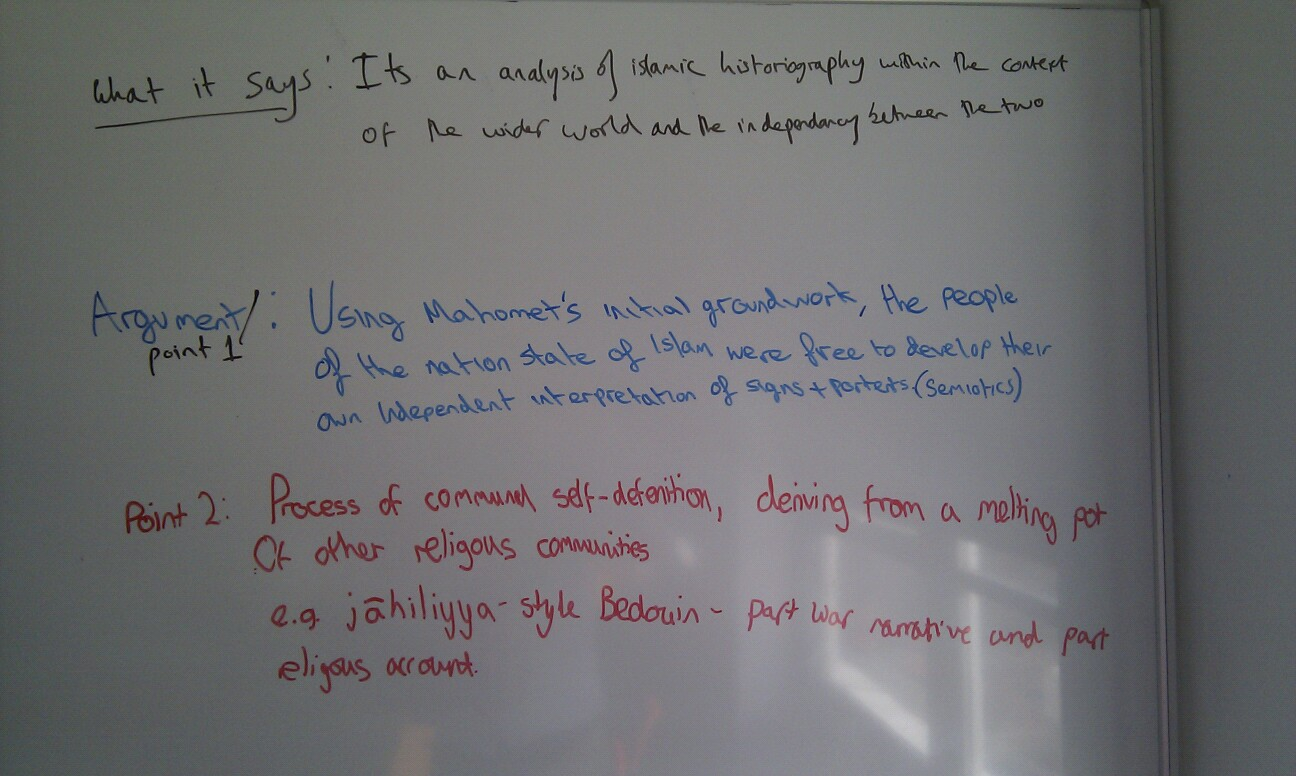 What it says: Its an analysis of islamic historiography within the context
of the wider world and the independancy between the two
Argument/: Using Mahomet's initial groundwork, the people
point 1 of the nation state of Islam were free to develop their
own Independent interpretation of signs + portents (Semiotics)
Point 2: Process of communal self-defenition, deriving from a melting pot
Of other religous communities
e.g. jāhiliyya-style Bedouin - part war narrative and part
eligous account.